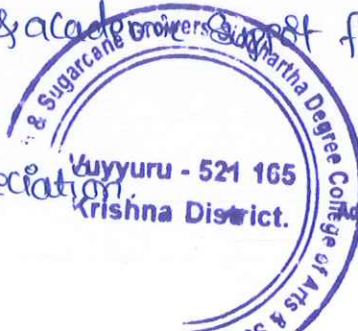 & academic Support f
& Sugarcane Growers Siddhartha Degree College of Arts &
Vuyyuru - 521 165
ociation.
Krishna District.
Ad